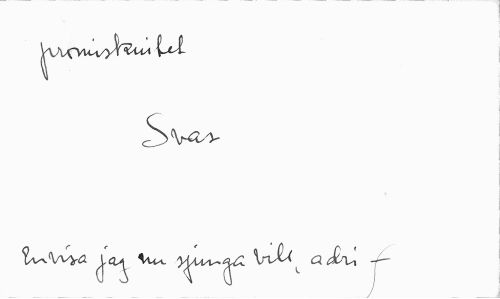 promiskuitet
Svas
En visa jag nu sjunga vill, adri